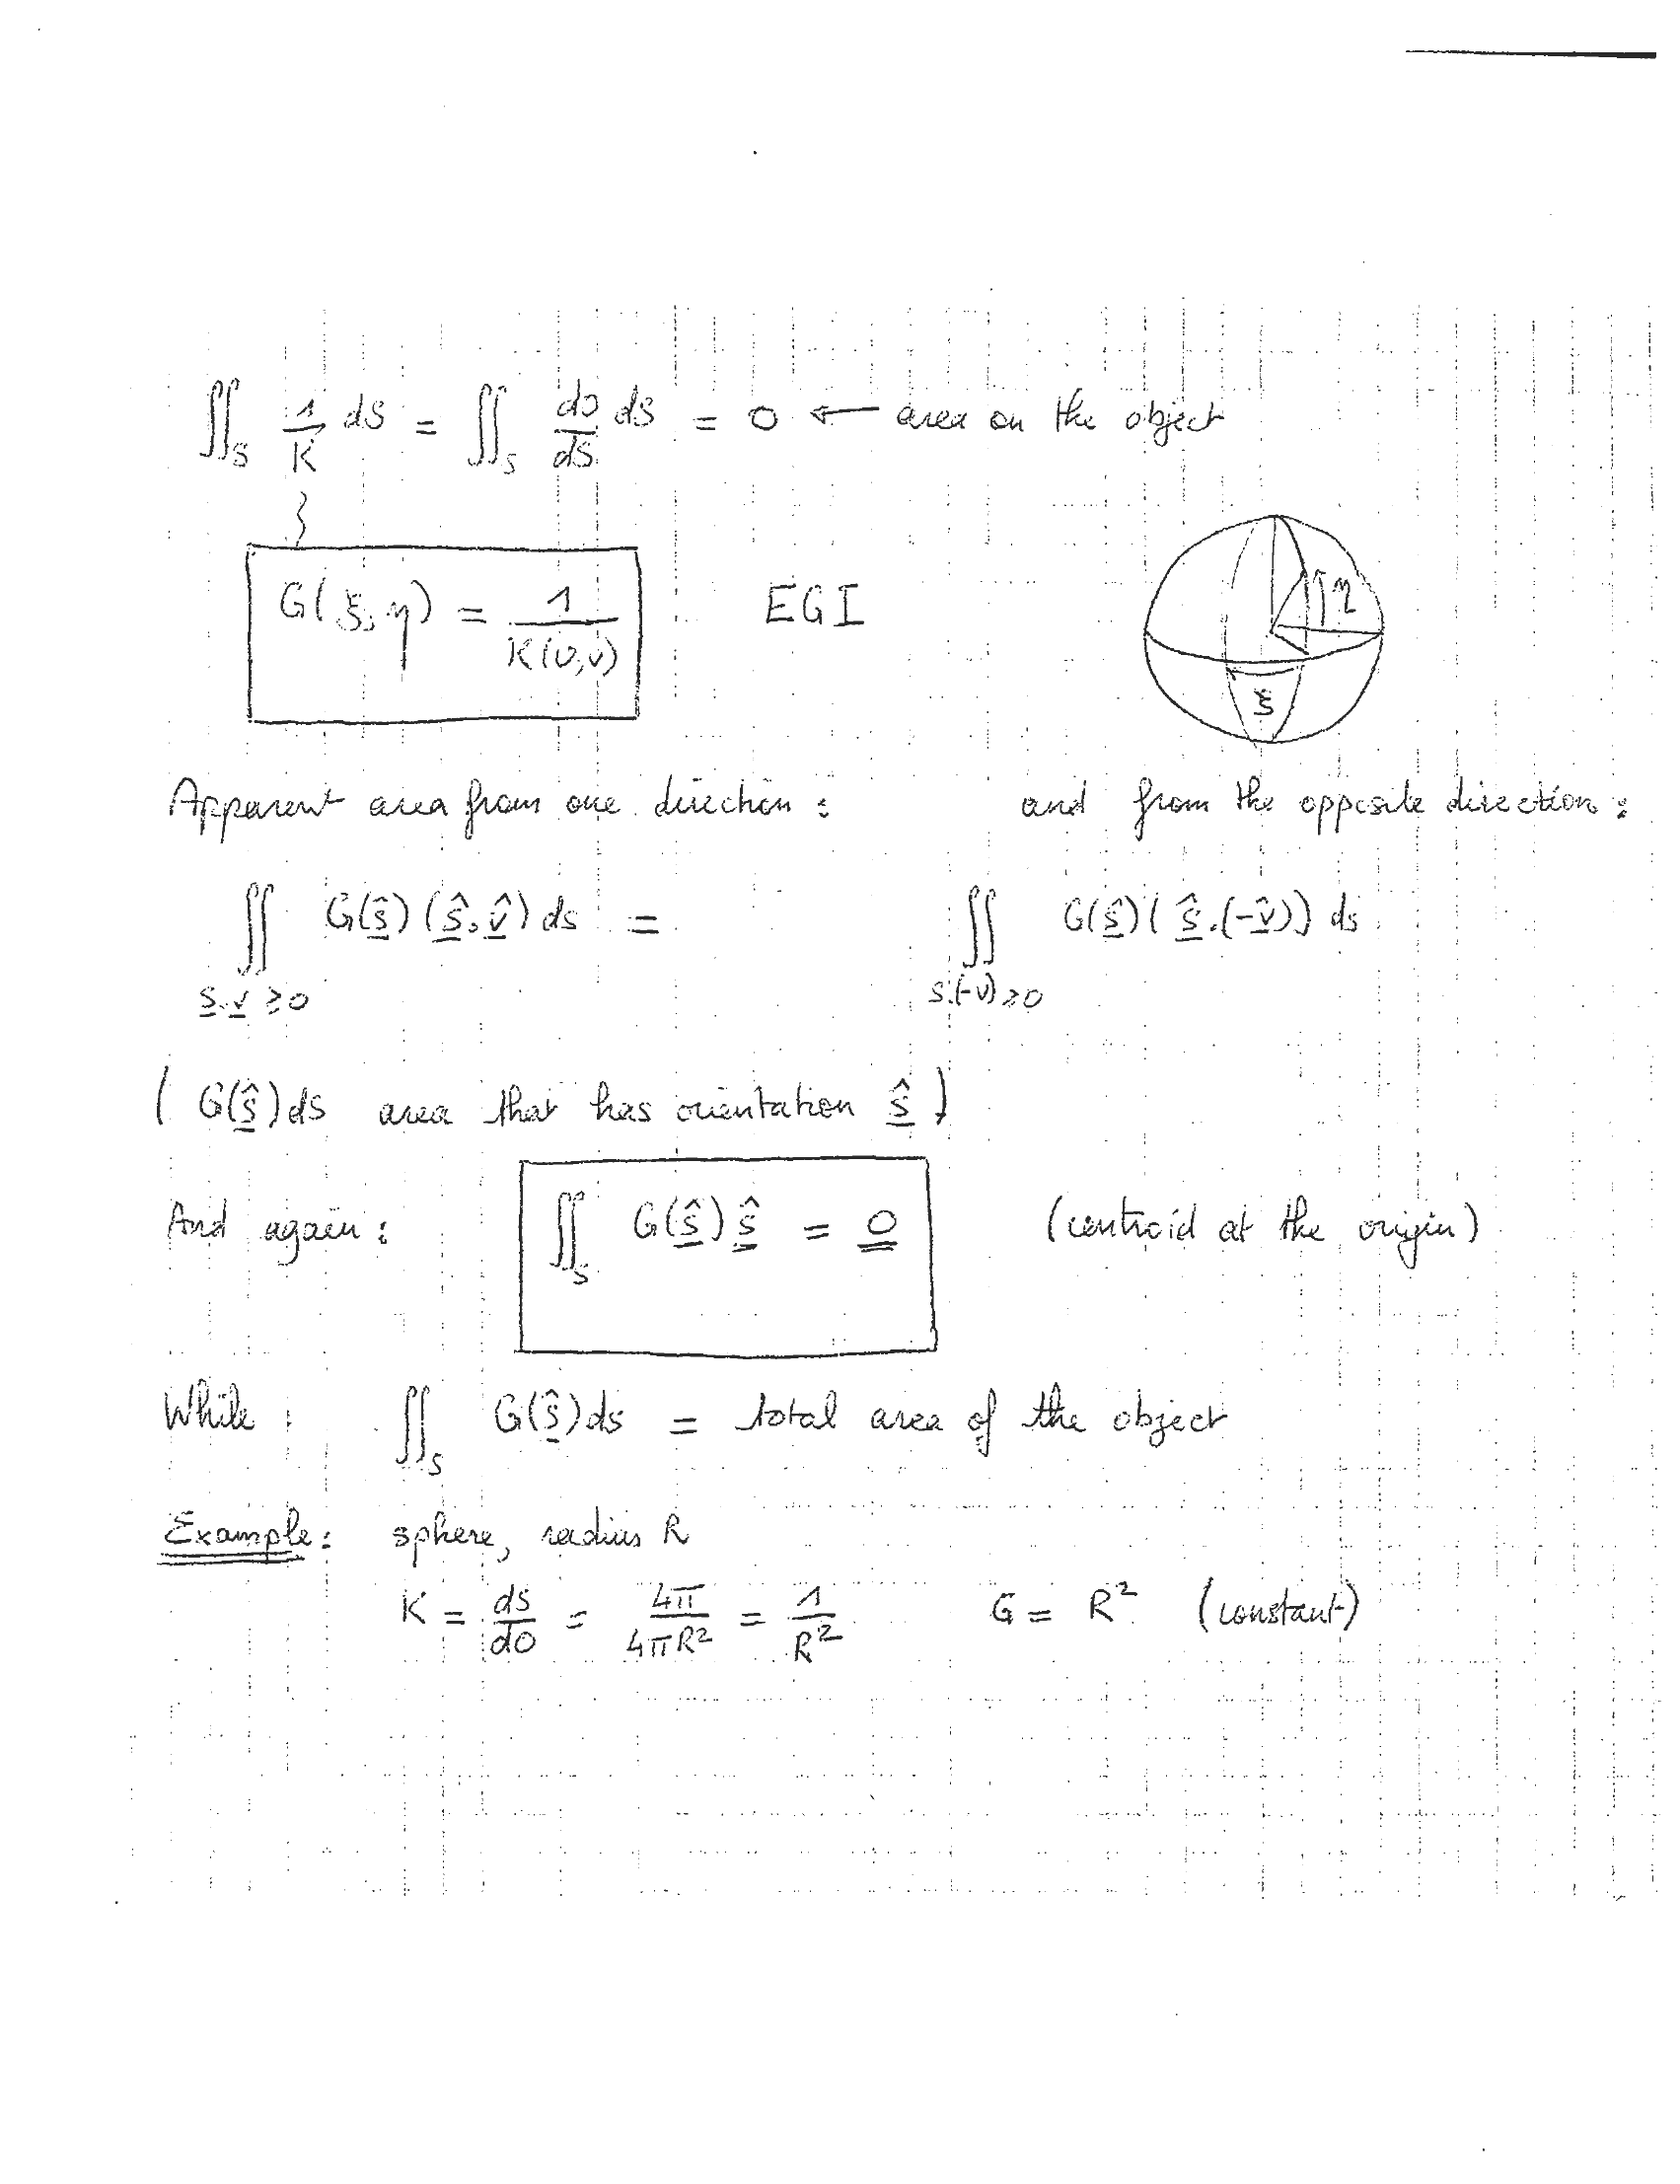 ∬_S 1/K dS = ∬_S dO/dS dS = O ← area on the object
G(ξ,η) = 1/K(u,v) EGI
η
ξ
Apparent area from one direction : and from the opposite direction :
∬ G(ŝ) (ŝ.v̂) ds = ∬ G(ŝ) (ŝ.(-v̂)) ds
s.v ≥ 0 s.(-v) ≥ 0
( G(ŝ) dS area that has orientation ŝ )
And again : ∬_S G(ŝ) ŝ = 0 (centroid at the origin)
While : ∬_S G(ŝ) ds = total area of the object
Example : sphere, radius R
K = dS/dO = 4π/4πR² = 1/R² G = R² (constant)